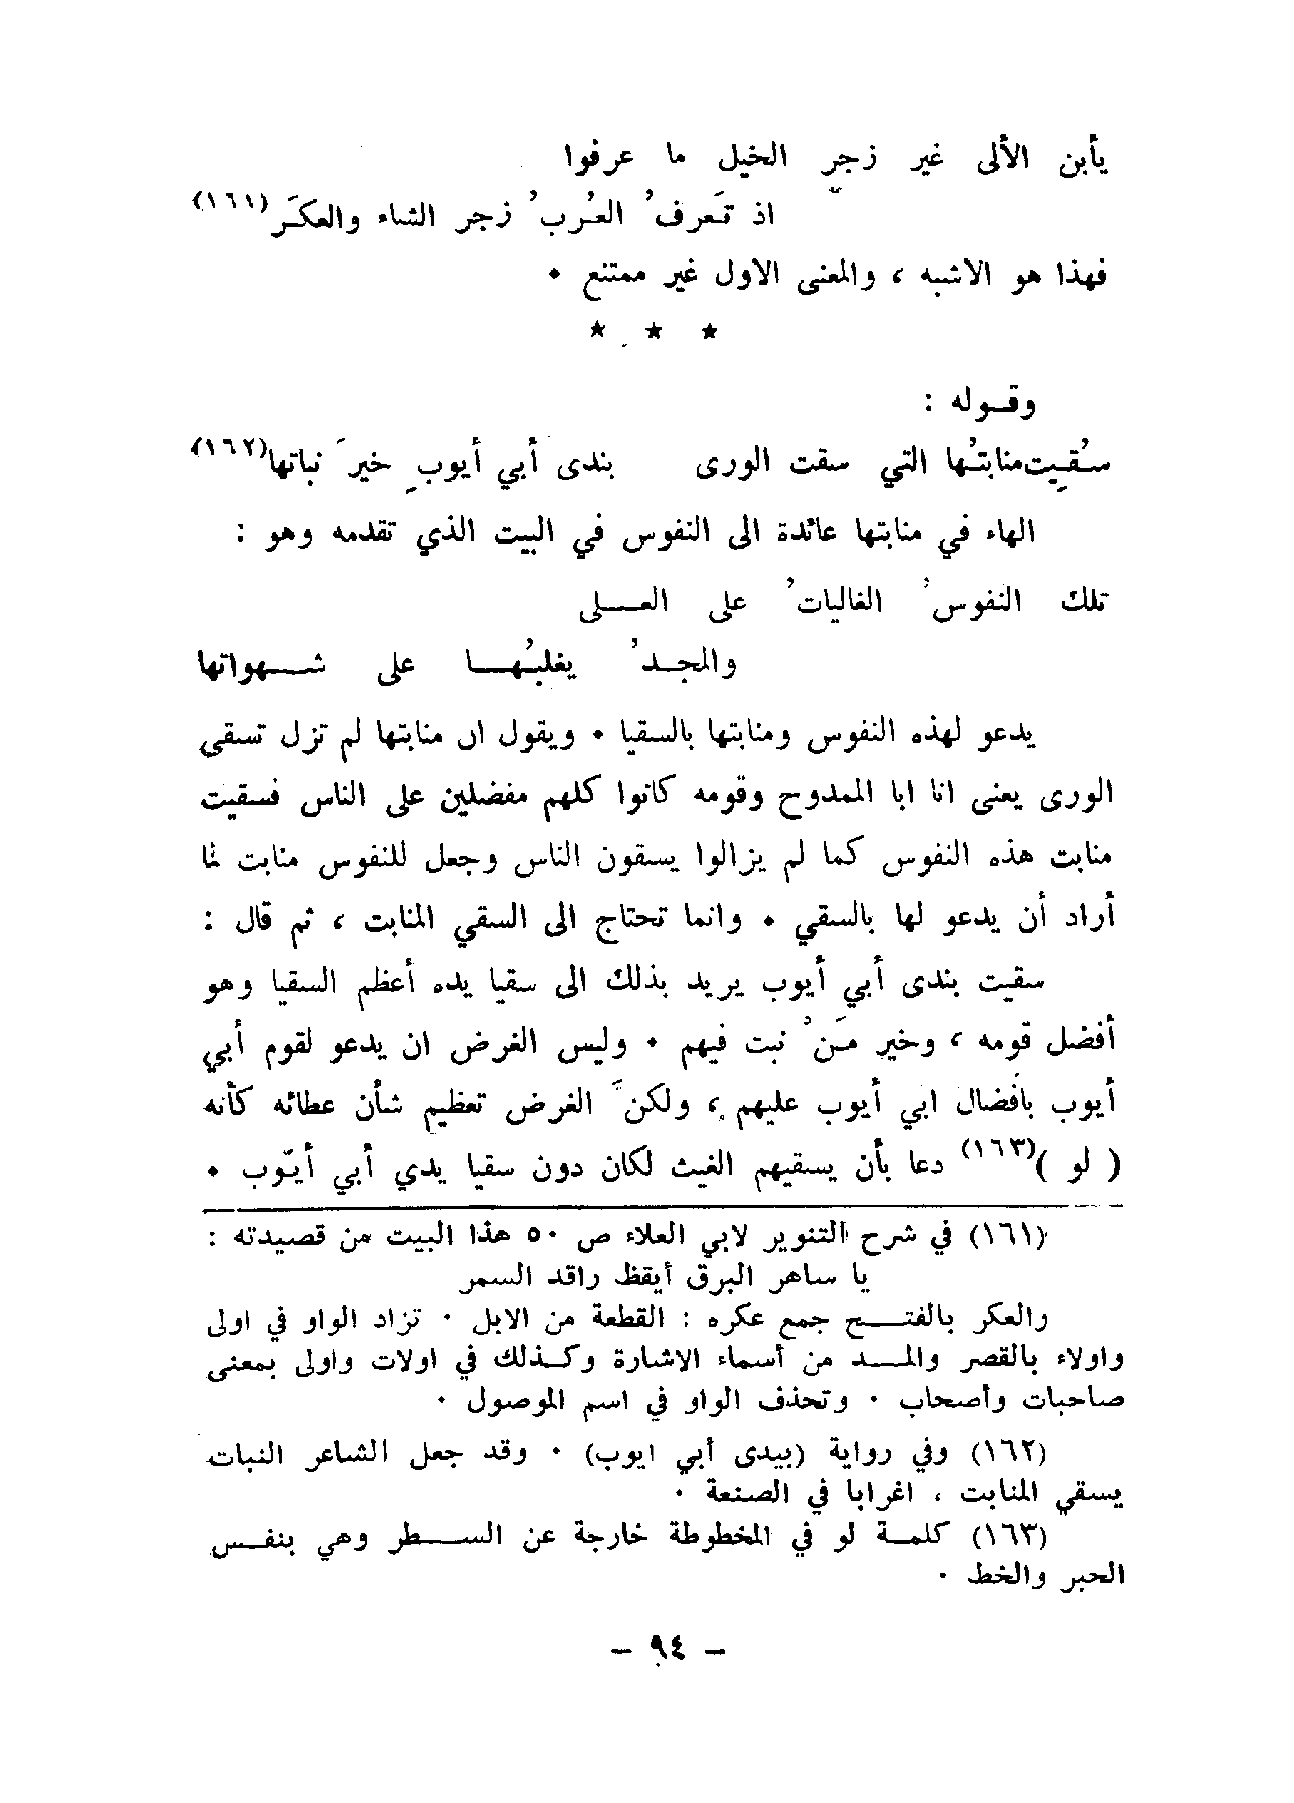 يأبن الألى غير زجرِ الخيل ما عرفوا
اذ تَعرفُ العُربُ زجر الشاء والعكَر(١٦١)
فهذا هو الاشبه ، والمعنى الاول غير ممتنع ٠
★ ★ ★
وقـوله :
سُقِيت منابتُها التي سقت الورى بندى أبي أيوبٍ خيرَ نباتها(١٦٢)
الهاء في منابتها عائدة الى النفوس في البيت الذي تقدمه وهو :
تلك النفوسُ الغالياتُ على العـــلى
والمجـدُ يغلبُهــا على شــهواتها
يدعو لهذه النفوس ومنابتها بالسقيا ٠ ويقول ان منابتها لم تزل تسقي
الورى يعنى انا ابا الممدوح وقومه كانوا كلهم مفضلين على الناس فسقيت
منابت هذه النفوس كما لم يزالوا يسقون الناس وجعل للنفوس منابت لما
أراد أن يدعو لها بالسقي ٠ وانما تحتاج الى السقي المنابت ، ثم قال :
سقيت بندى أبي أيوب يريد بذلك الى سقيا يده أعظم السقيا وهو
أفضل قومه ، وخير مَنْ نبت فيهم ٠ وليس الغرض ان يدعو لقوم أبي
أيوب بافضال ابي أيوب عليهم ، ولكنّ الغرض تعظيم شأن عطائه كأنه
( لو )(١٦٣) دعا بأن يسقيهم الغيث لكان دون سقيا يدي أبي أيّوب ٠
(١٦١) في شرح التنوير لابي العلاء ص ٥٠ هذا البيت من قصيدته :
يا ساهر البرق أيقظ راقد السمر
والعكر بالفتـــح جمع عكره : القطعة من الابل ٠ تزاد الواو في اولى
واولاء بالقصر والمـــد من أسماء الاشارة وكـذلك في اولات واولى بمعنى
صاحبات وأصحاب ٠ وتحذف الواو في اسم الموصول ٠
(١٦٢) وفي رواية (بيدى أبي ايوب) ٠ وقد جعل الشاعر النبات
يسقي المنابت ، اغرابا في الصنعة ٠
(١٦٣) كلمـة لو في المخطوطة خارجة عن الســطر وهي بنفـس
الحبر والخط ٠
– ٩٤ –